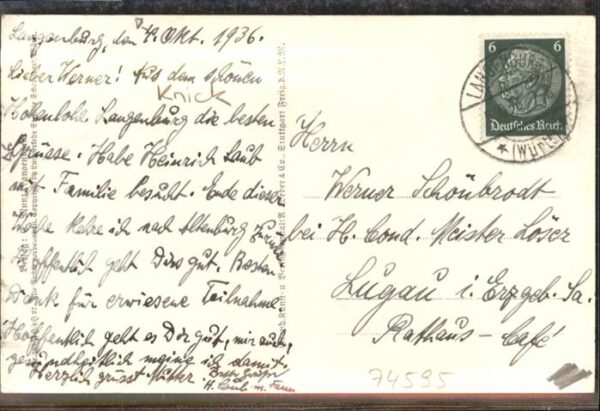 Langenburg, den 4. Okt. 1936.
Lieber Werner! Aus dem schönen
Knick
Hohenlohe Langenburg die besten
Grüsse. Habe Heinrich Laub
mit Familie besucht. Ende dieser
Woche kehre ich nach Altenburg zurück
Hoffentlich geht Dirs gut. Besten
Dank für erwiesene Teilnahme
Hoffentlich geht es Dir gut, mir auch,
gesundheitlich meine ich damit.
Herzlich grüsst
H. Laub m. Fam
6 6
Deutsches Reich
LANGENBURG
(WÜRTT)
Herrn
Werner Schönbrodt
bei H. Cond. Meister Löser
Lugau i. Erzgeb. Sa.
Rathaus-Café
74595